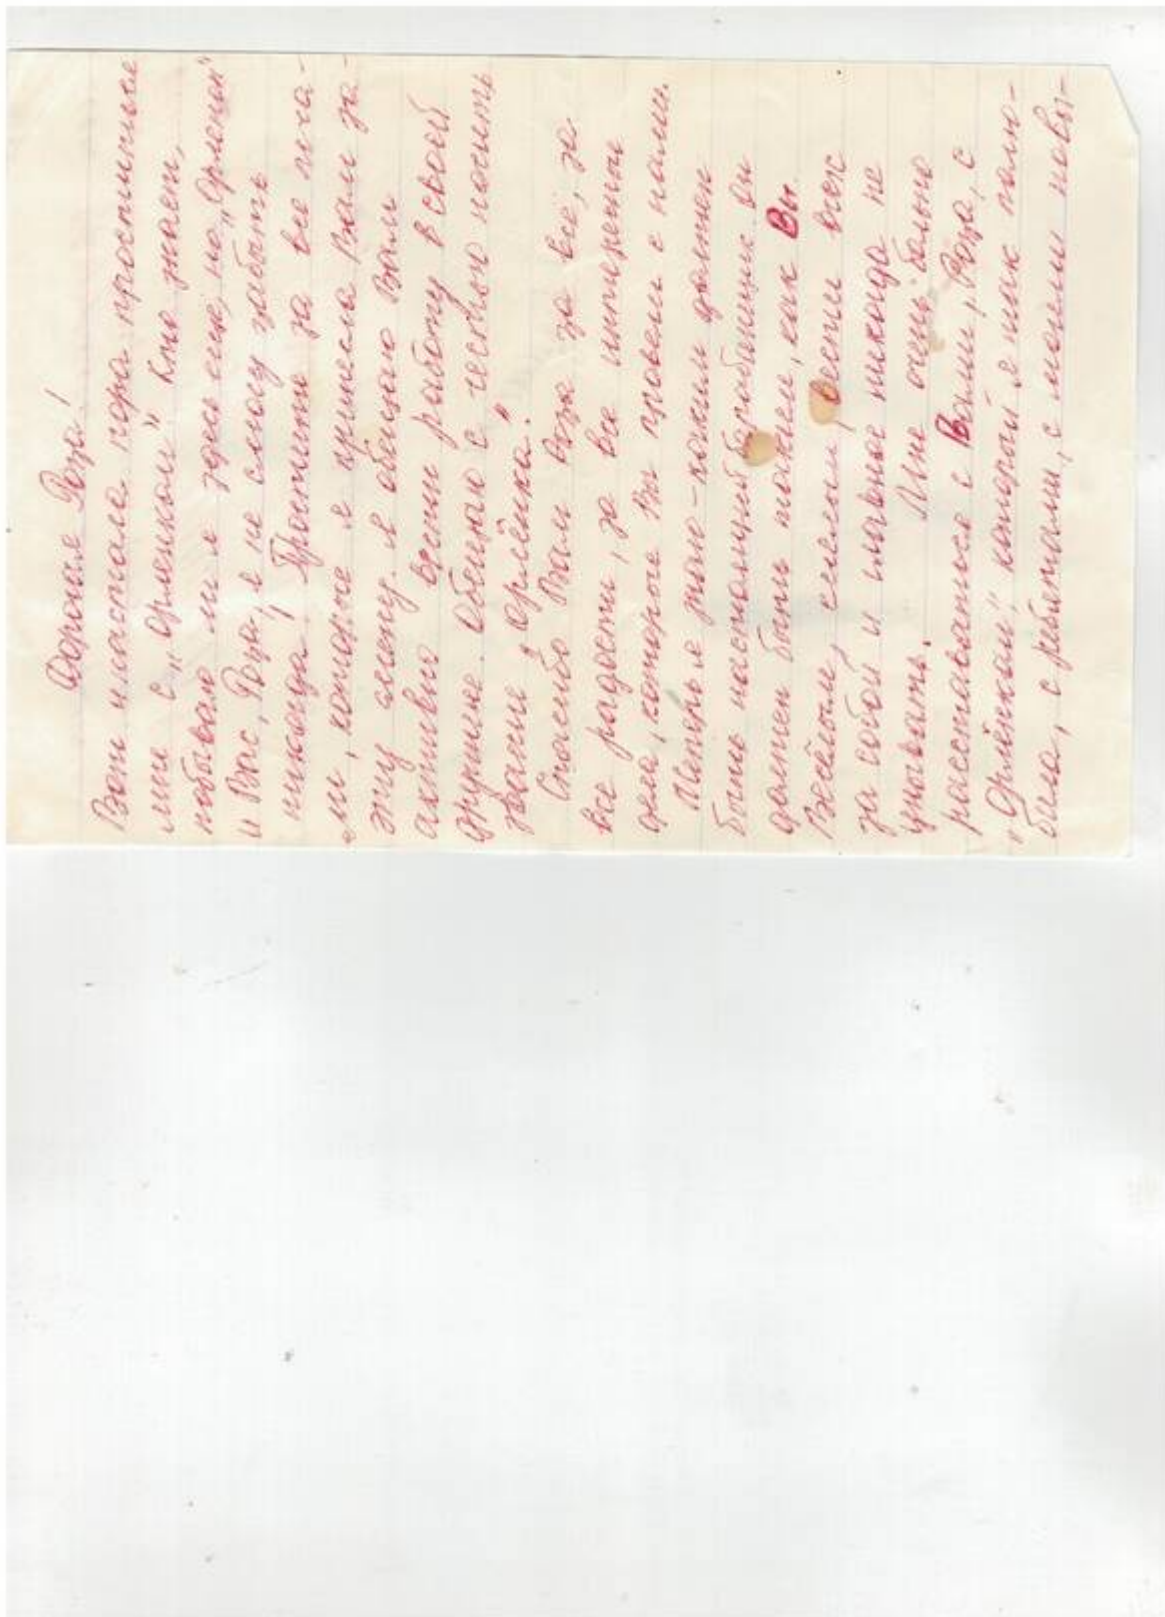 Дорогая Роза!
Вот и настала пора проститься
мне с „орленком". Кто знает,
побываю ли я здесь еще, но „Орленок"
и Вас, Роза, я не смогу забыть
никогда! Простите за все печа-
ли, которые я принесла Вам за
эту смену. Я обещаю Вам
активно вести работу в своей
дружине. Обещаю с честью носить
звание „орлёнка".
Спасибо Вам Роза за всё, за
все радости, за все интересные
дела, которые Вы провели с нами.
Теперь я знаю - каким должен
быть настоящий барабанщик он
должен быть таким, как Вы.
Весёлым, смелым, вести всех
за собой и главное никогда не
унывать. Мне очень больно
расставаться с Вами, Роза, с
„Орлёнком", который я так полю-
била, с ребятами, с моими новы-